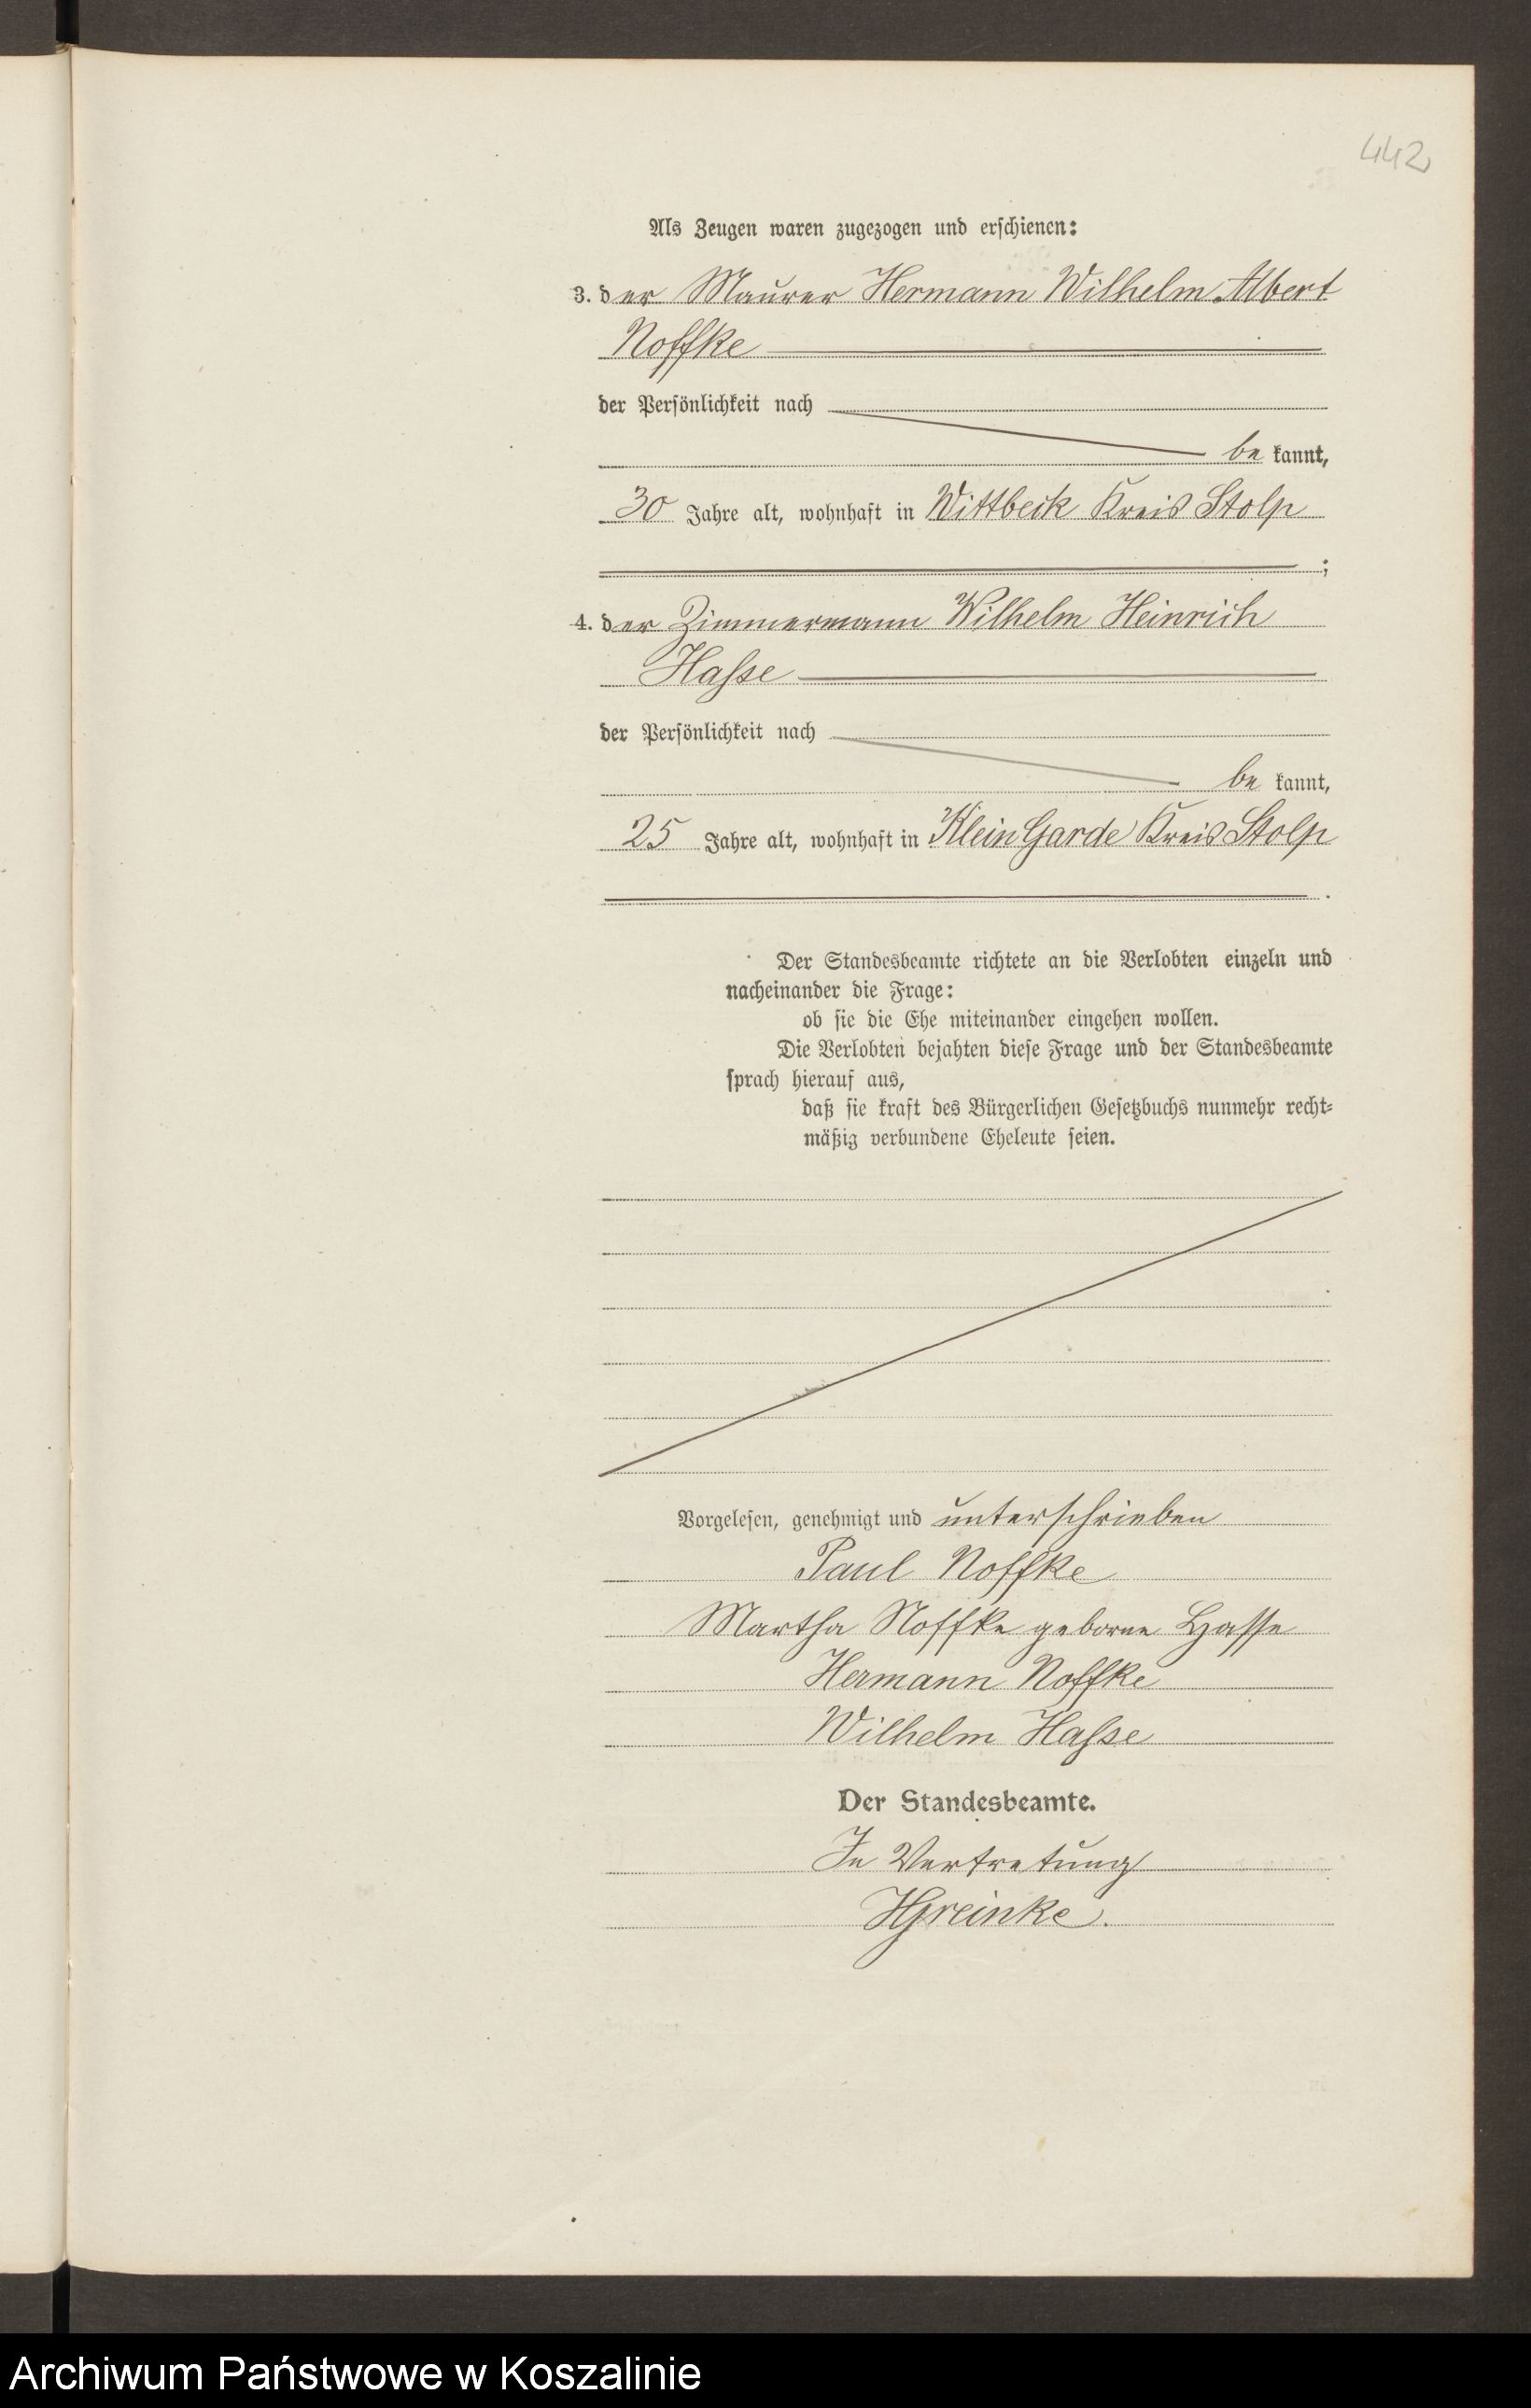 442
Als Zeugen waren zugezogen und erschienen:
3. der Maurer Hermann Wilhelm Albert
Noffke
der Persönlichkeit nach
be kannt,
30 Jahre alt, wohnhaft in Wittbeck Kreis Stolp
;
4. der Zimmermann Wilhelm Heinrich
Haſse
der Persönlichkeit nach
be kannt,
25 Jahre alt, wohnhaft in Klein Garde Kreis Stolp
.
Der Standesbeamte richtete an die Verlobten einzeln und
nacheinander die Frage:
ob sie die Ehe miteinander eingehen wollen.
Die Verlobten bejahten diese Frage und der Standesbeamte
sprach hierauf aus,
daß sie kraft des Bürgerlichen Gesetzbuchs nunmehr recht-
mäßig verbundene Eheleute seien.
Vorgelesen, genehmigt und unterschrieben
Paul Noffke
Martha Noffke geborne Hasse
Hermann Noffke
Wilhelm Haſse
Der Standesbeamte.
In Vertretung
HGreinke.
Archiwum Państwowe w Koszalinie